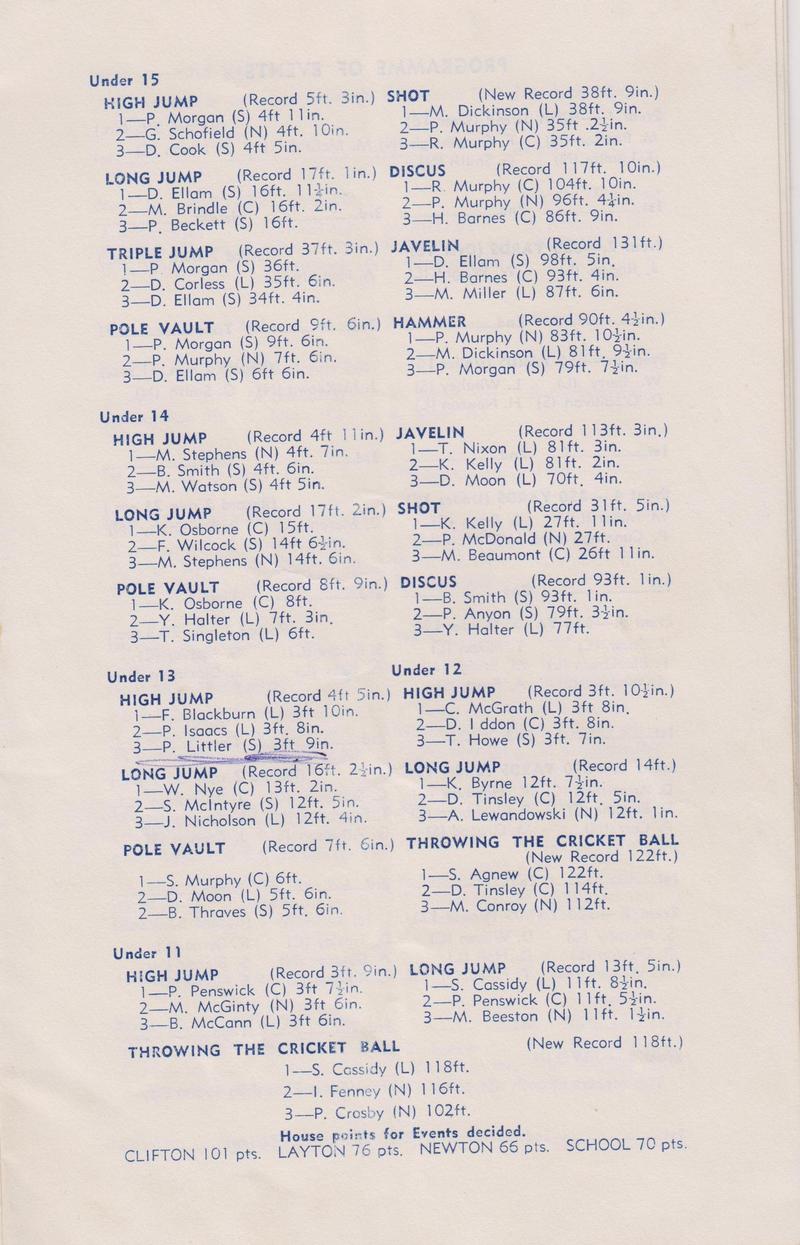 Under 15
HIGH JUMP (Record 5ft. 3in.)
1—P. Morgan (S) 4ft 11in.
2—G. Schofield (N) 4ft. 10in.
3—D. Cook (S) 4ft 5in.
LONG JUMP (Record 17ft. 1in.)
1—D. Ellam (S) 16ft. 11½in.
2—M. Brindle (C) 16ft. 2in.
3—P. Beckett (S) 16ft.
TRIPLE JUMP (Record 37ft. 3in.)
1—P Morgan (S) 36ft.
2—D. Corless (L) 35ft. 6in.
3—D. Ellam (S) 34ft. 4in.
POLE VAULT (Record 9ft. 6in.)
1—P. Morgan (S) 9ft. 6in.
2—P. Murphy (N) 7ft. 6in.
3—D. Ellam (S) 6ft 6in.
SHOT (New Record 38ft. 9in.)
1—M. Dickinson (L) 38ft. 9in.
2—P. Murphy (N) 35ft .2½in.
3—R. Murphy (C) 35ft. 2in.
DISCUS (Record 117ft. 10in.)
1—R Murphy (C) 104ft. 10in.
2—P. Murphy (N) 96ft. 4¼in.
3—H. Barnes (C) 86ft. 9in.
JAVELIN (Record 131ft.)
1—D. Ellam (S) 98ft. 5in.
2—H. Barnes (C) 93ft. 4in.
3—M. Miller (L) 87ft. 6in.
HAMMER (Record 90ft. 4½in.)
1—P. Murphy (N) 83ft. 10½in.
2—M. Dickinson (L) 81ft. 9½in.
3—P. Morgan (S) 79ft. 7½in.
Under 14
HIGH JUMP (Record 4ft 11in.)
1—M. Stephens (N) 4ft. 7in.
2—B. Smith (S) 4ft. 6in.
3—M. Watson (S) 4ft 5in.
LONG JUMP (Record 17ft. 2in.)
1—K. Osborne (C) 15ft.
2—F. Wilcock (S) 14ft 6½in.
3—M. Stephens (N) 14ft. 6in.
POLE VAULT (Record 8ft. 9in.)
1—K. Osborne (C) 8ft.
2—Y. Halter (L) 7ft. 3in.
3—T. Singleton (L) 6ft.
JAVELIN (Record 113ft. 3in.)
1—T. Nixon (L) 81ft. 3in.
2—K. Kelly (L) 81ft. 2in.
3—D. Moon (L) 70ft. 4in.
SHOT (Record 31ft. 5in.)
1—K. Kelly (L) 27ft. 11in.
2—P. McDonald (N) 27ft.
3—M. Beaumont (C) 26ft 11in.
DISCUS (Record 93ft. 1in.)
1—B. Smith (S) 93ft. 1in.
2—P. Anyon (S) 79ft. 3½in.
3—Y. Halter (L) 77ft.
Under 13
HIGH JUMP (Record 4ft 5in.)
1—F. Blackburn (L) 3ft 10in.
2—P. Isaacs (L) 3ft. 8in.
3—P. Littler (S) 3ft 9in.
LONG JUMP (Record 16ft. 2½in.)
1—W. Nye (C) 13ft. 2in.
2—S. McIntyre (S) 12ft. 5in.
3—J. Nicholson (L) 12ft. 4in.
POLE VAULT (Record 7ft. 6in.)
1—S. Murphy (C) 6ft.
2—D. Moon (L) 5ft. 6in.
2—B. Thraves (S) 5ft. 6in.
Under 12
HIGH JUMP (Record 3ft. 10½in.)
1—C. McGrath (L) 3ft 8in.
2—D. I ddon (C) 3ft. 8in.
3—T. Howe (S) 3ft. 7in.
LONG JUMP (Record 14ft.)
1—K. Byrne 12ft. 7½in.
2—D. Tinsley (C) 12ft. 5in.
3—A. Lewandowski (N) 12ft. 1in.
THROWING THE CRICKET BALL
(New Record 122ft.)
1—S. Agnew (C) 122ft.
2—D. Tinsley (C) 114ft.
3—M. Conroy (N) 112ft.
Under 11
HIGH JUMP (Record 3ft. 9in.)
1—P. Penswick (C) 3ft 7½in.
2—M. McGinty (N) 3ft 6in.
3—B. McCann (L) 3ft 6in.
LONG JUMP (Record 13ft. 5in.)
1—S. Cassidy (L) 11ft. 8½in.
2—P. Penswick (C) 11ft. 5½in.
3—M. Beeston (N) 11ft. 1½in.
THROWING THE CRICKET BALL (New Record 118ft.)
1—S. Cassidy (L) 118ft.
2—I. Fenney (N) 116ft.
3—P. Crosby (N) 102ft.
House points for Events decided.
CLIFTON 101 pts. LAYTON 76 pts. NEWTON 66 pts. SCHOOL 70 pts.